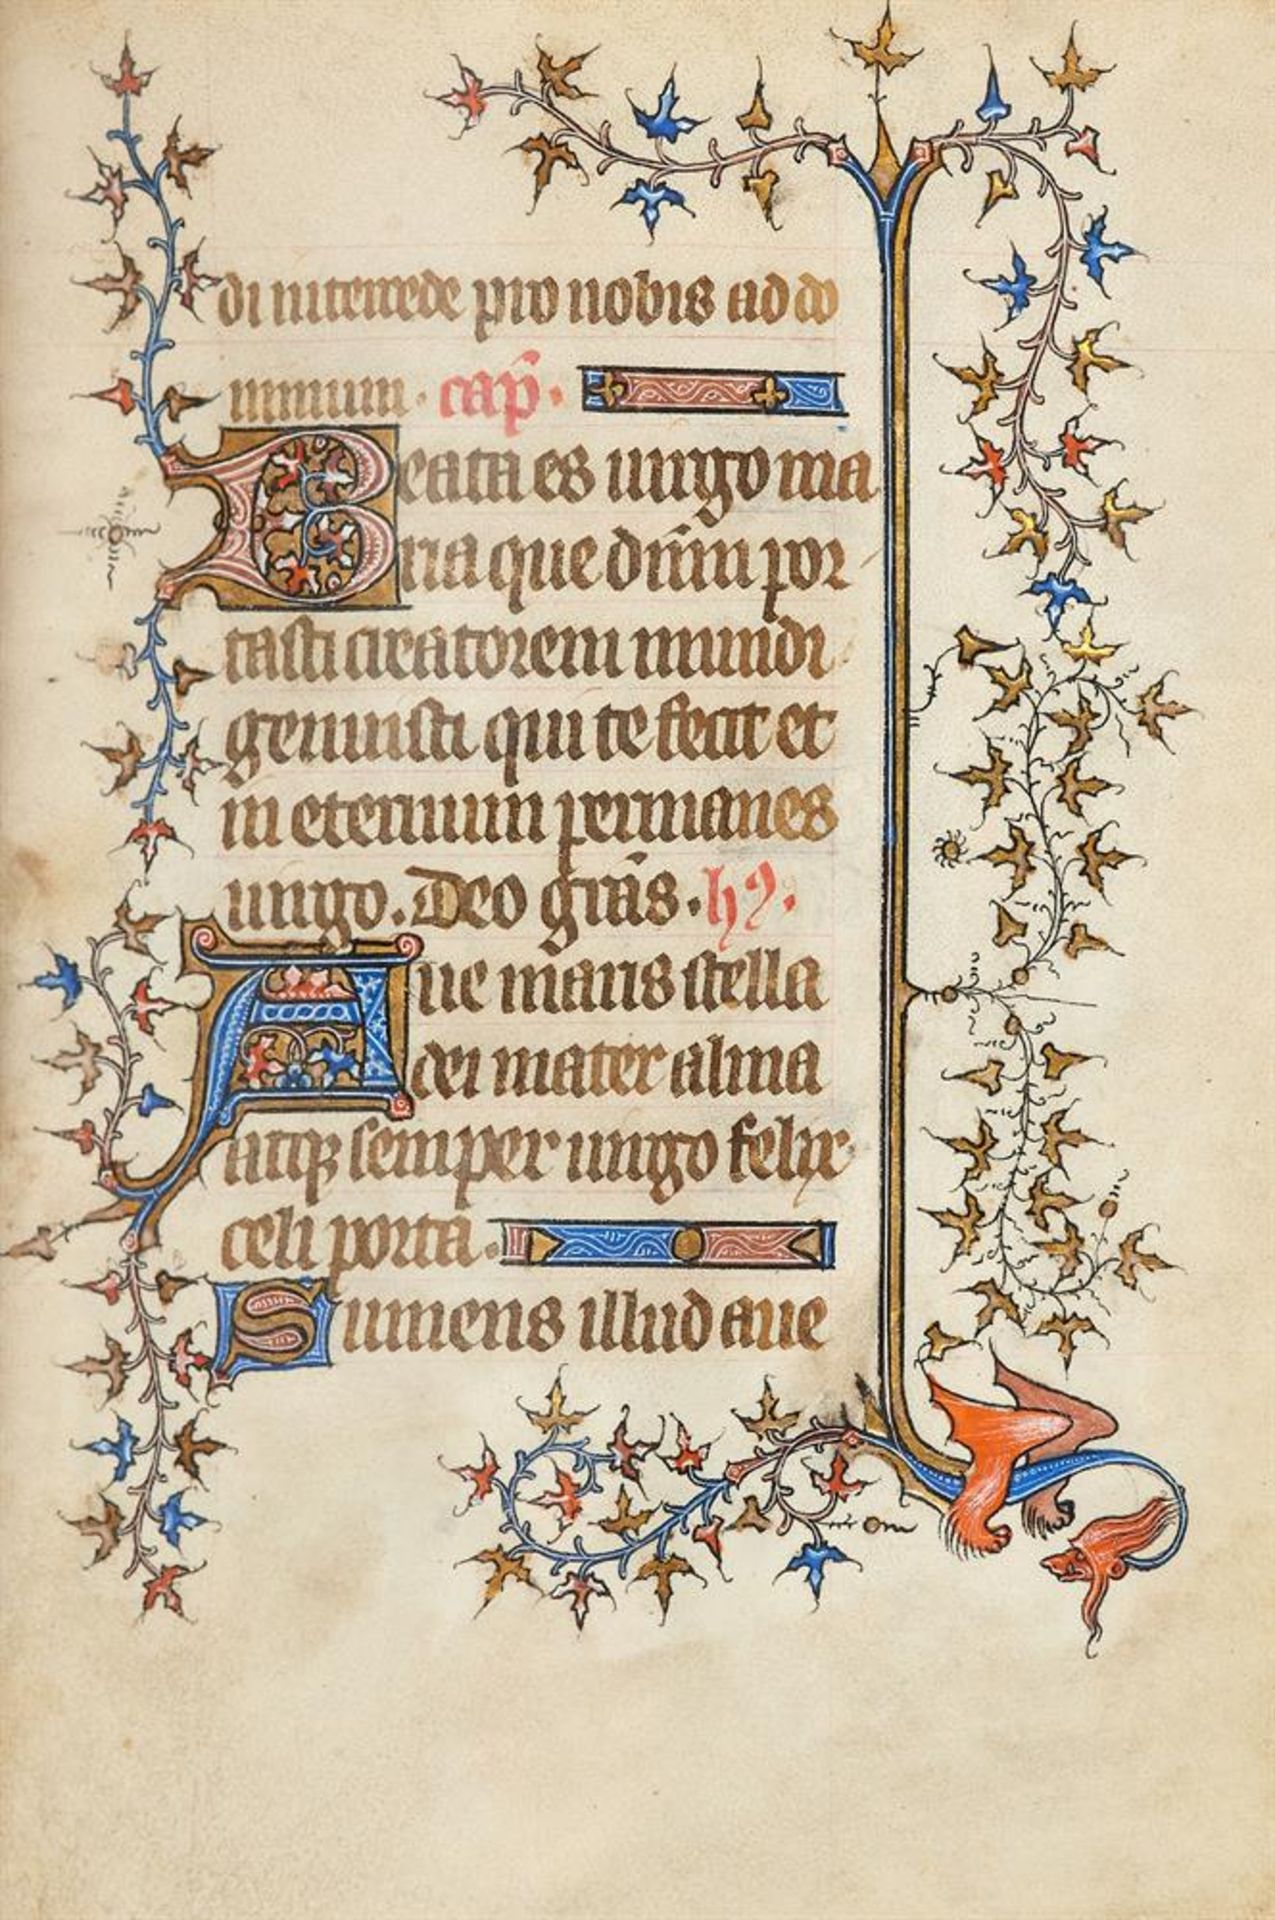 di intercede pro nobis ad do
minum. cap̄.
Beata es uirgo ma
ria que dñm por
tasti creatorem mundi
genuisti qui te fecit et
in eternum permanes
uirgo. Deo grãs. hỹ.
Aue maris stella
dei mater alma
atqꝫ semper uirgo felix
celi porta.
Sumens illud aue